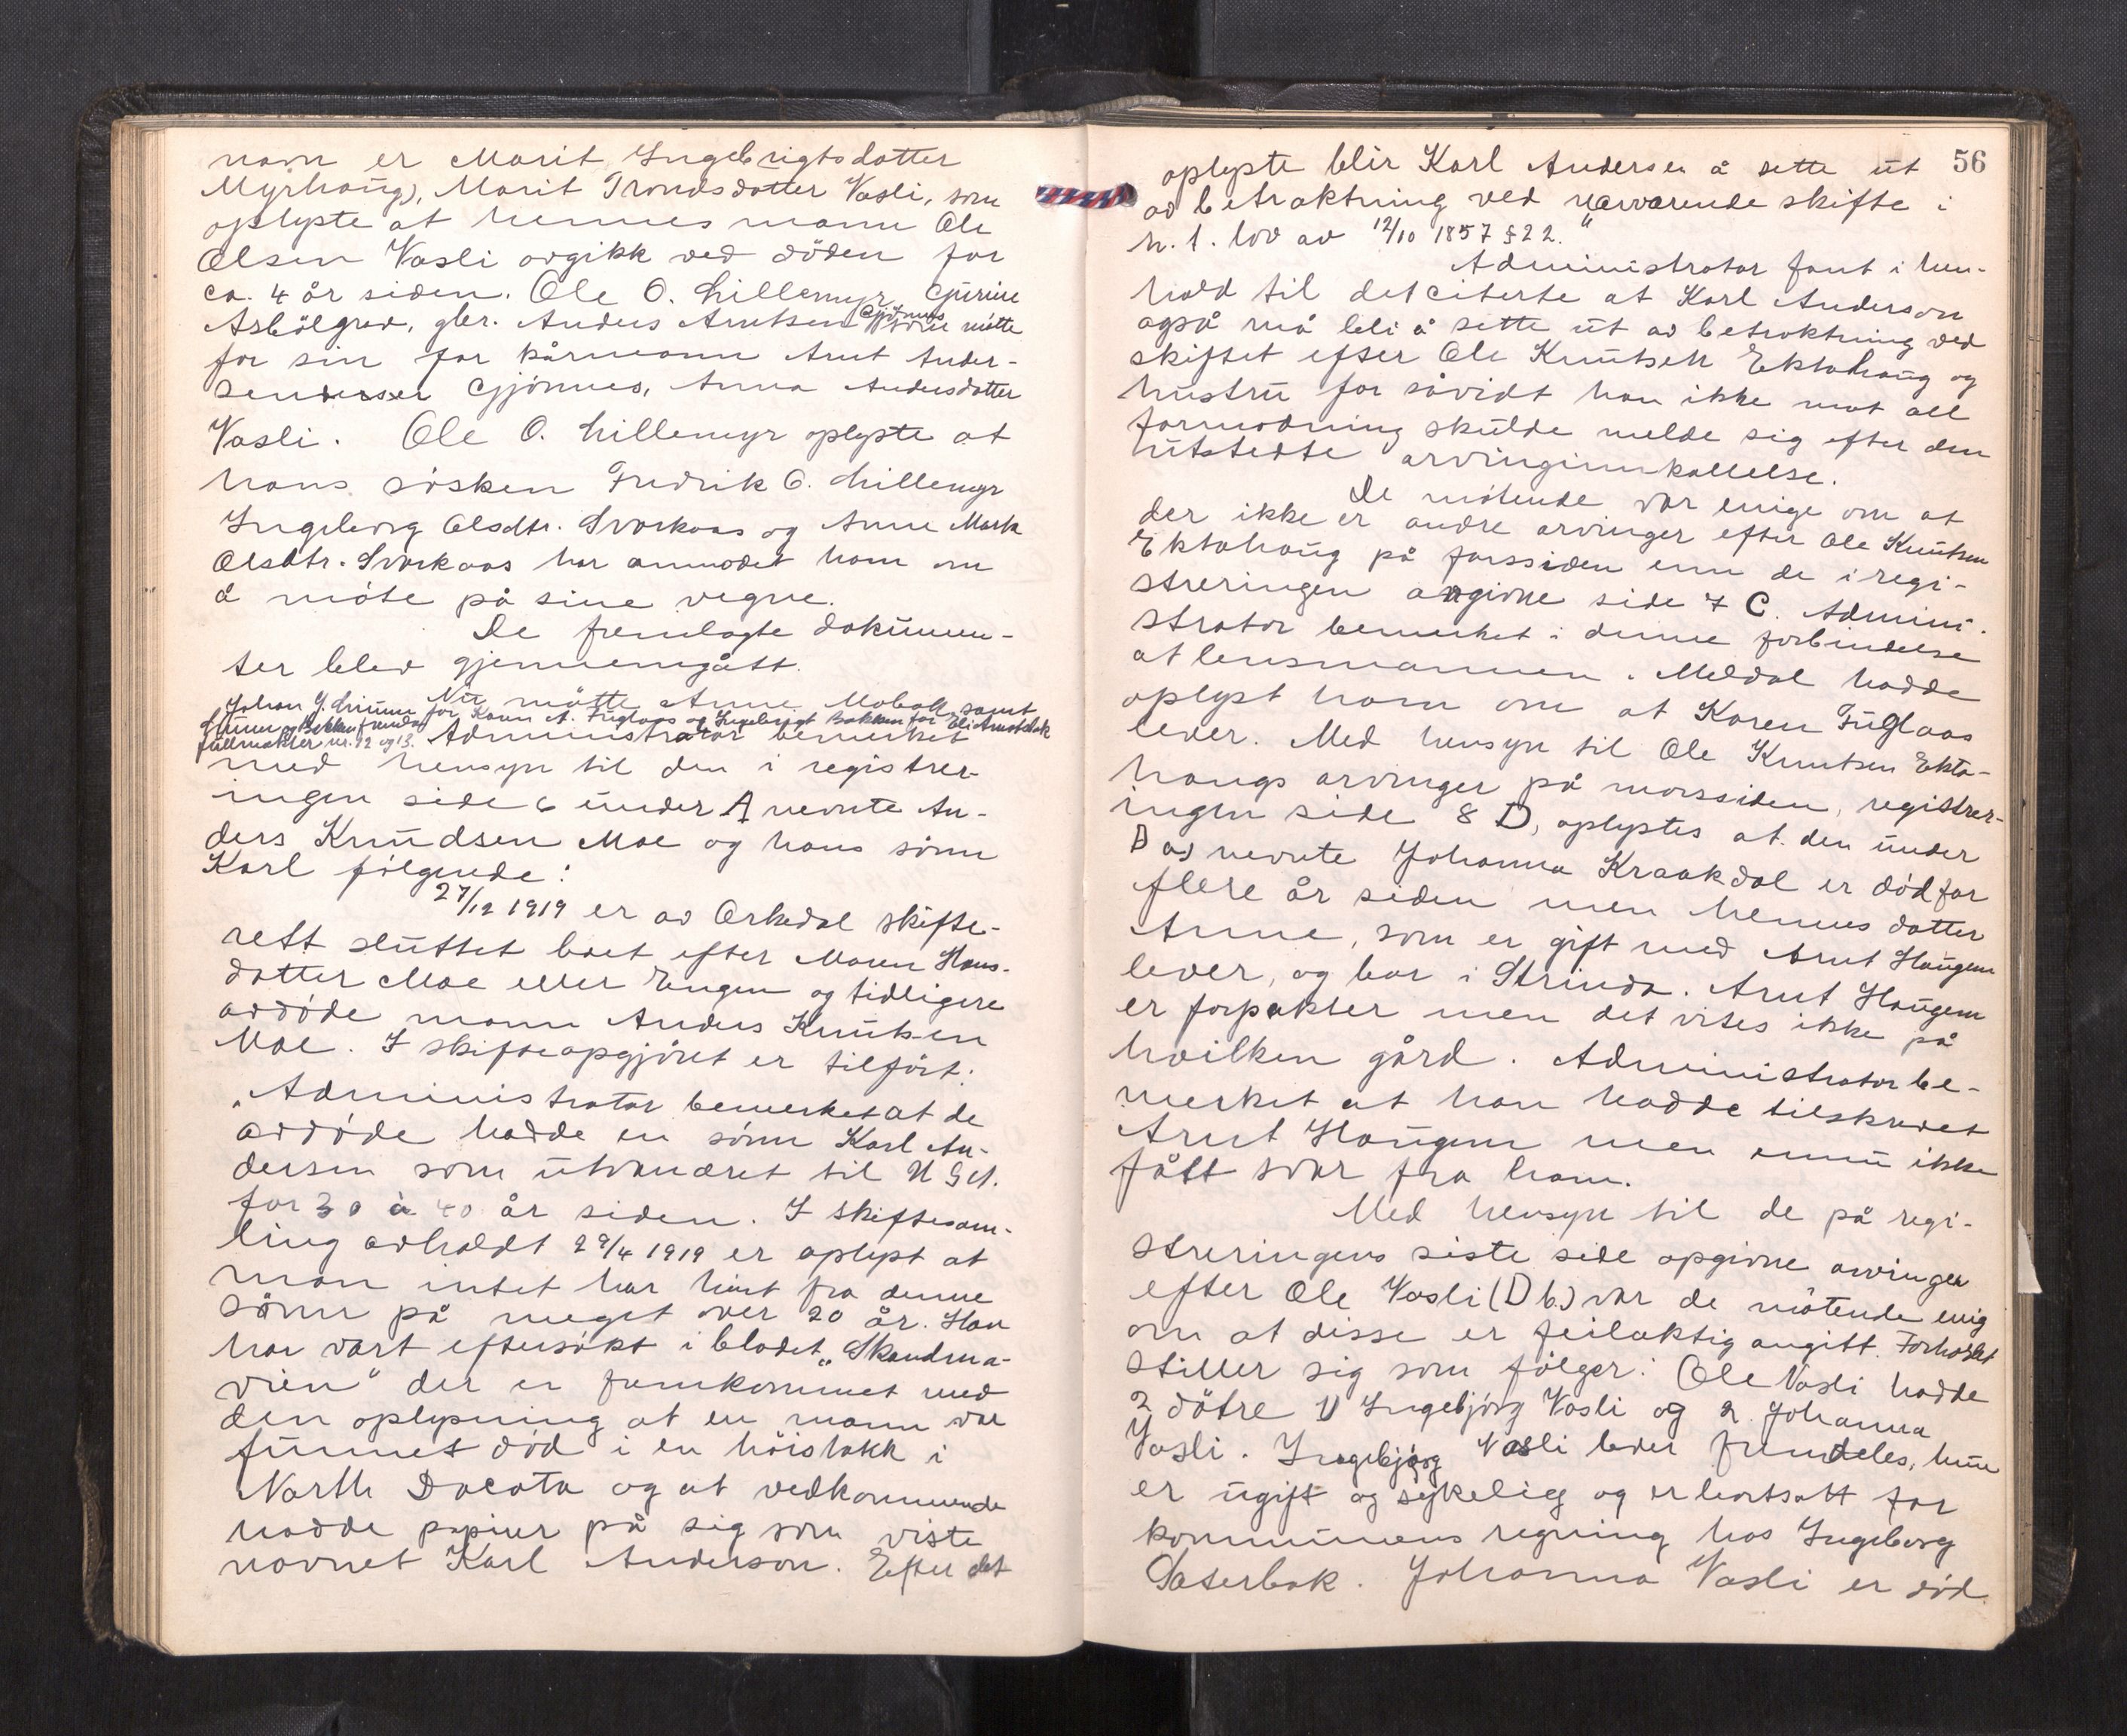 navn er Marit Ingebrigtsdatter
Myrhaug), Marit Trondsdatter Vasli, som
oplyste at hennes mann Ole
Olsen Vasli avgikk ved döden for
ca. 4 år siden. Ole O. Lillemyr, Gurine
Asbölgrav, gbr. Anders Arntsen Gjönnes møtte
for sin far kårmann Arnt Ander-
sen Gjönnes, Anna Andersdatter
Vasli. Ole O. Lillemyr oplyste at
hans søsken Fredrik O. Lillemyr
Ingeborg Olsdtr. Svorkaas og Anne Marta
Olsdtr. Svorkaas har anmodet ham om
å møte på sine vegne.
De fremlagte dokumen-
ter blev gjennemgått.
Nu møtte Anne Moholt samt
Johan J. for Karen A. Fuglaas og Ingebrigt Bakken for Eli Arnotsbak
og Bakken fremla
fullmakter nr. 12 og 13. Administrator bemerket
med hensyn til den i registrer-
ingen side 6 under A nevnte An-
ders Knudsen Moe og hans sønn
Karl følgende:
27/12 1919 er av Orkedal skifte-
rett sluttet boet efter Maren Hans-
datter Moe eller Engen og tidligere
avdøde mann Anders Knutsen
Moe. I skifteopgjöret er tilført:
"Administrator bemerket at de
avdøde hadde en sønn Karl An-
dersen som utvandret til USA.
for 30 à 40 år siden. I skiftesam-
ling avholdt 29/4 1919 er oplyst at
man intet har hört fra denne
sönn på meget over 20 år. Han
har vært eftersøkt i bladet "Skandina-
vien" der er fremkommet med
den oplysning at en mann var
funnet død i en høistakk i
North Dacota og at vedkommende
hadde papirer på sig som viste
navnet Karl Anderson. Efter det
56
oplyste blir Karl Andersen å sette ut
av betraktning ved nærværende skifte i
h. t. lov av 12/10 1857 § 22."
Administrator fant i hen-
hold til det citerte at Karl Anderson
også må bli å sette ut av betraktning ved
skiftet efter Ole Knutsen Ektahaug og
hustru for såvidt han ikke mot all
formodning skulde melde sig efter den
utstedte arvinginnkallelse.
De møtende var enige om at
der ikke er andre arvinger efter Ole Knutsen
Ektahaug på farssiden enn de i regi-
streringen angivne side 7 C. Admini-
strator bemerket i denne forbindelse
at lensmannen i Meldal hadde
oplyst ham om at Karen Fuglaas
lever. Med hensyn til Ole Knutsen Ekta-
haugs arvinger på morssiden, registrer-
ingen side 8 D, oplystes at den under
D a) nevnte Johanna Kraakdal er død for
flere år siden men hennes datter
Anne, som er gift med Arnt Haugen
lever, og bor i Strinda. Arnt Haugen
er forpakter men det vites ikke på
hvilken gård. Administrator be-
merket at han hadde tilskrevet
Arnt Haugen men ennu ikke
fått svar fra ham.
Med hensyn til de på regi-
streringens siste side opgivne arvinger
efter Ole Vasli (D b.) var de møtende enig
om at disse er feilaktig angitt. Forholdet
stiller sig som følger: Ole Vasli hadde
2 døtre 1) Ingebjørg Vasli og 2. Johanna
Vasli. Ingebjørg Vasli lever fremdeles, hun
er ugift og sykelig og er bortsatt for
kommunens regning hos Ingeborg
Sæterbak. Johanna Vasli er død.